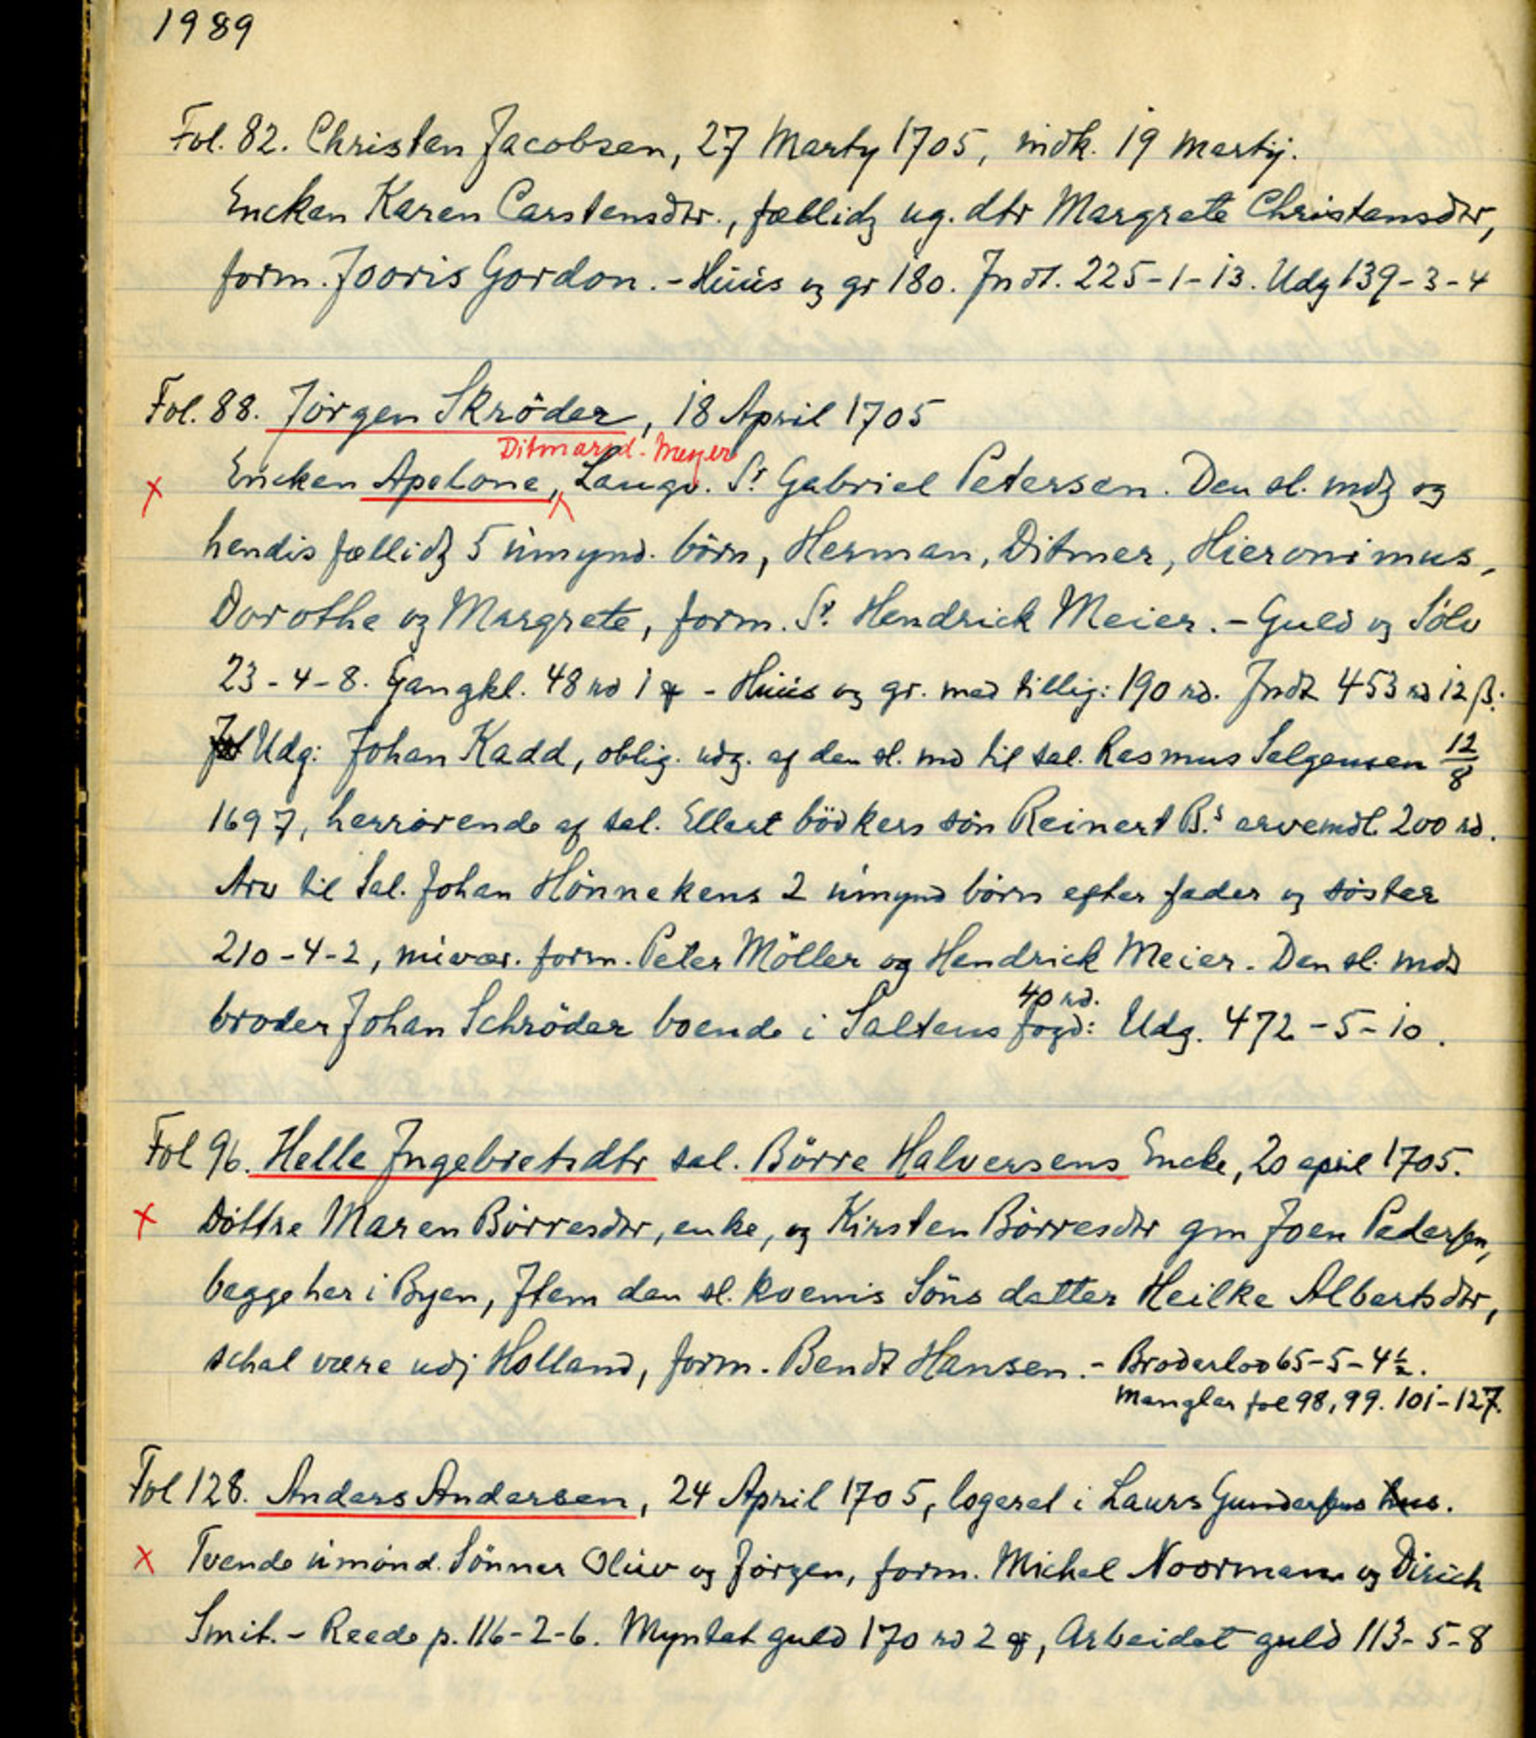 1989
Fol. 82. Christen Jacobsen, 27 Marty 1705, indk. 19 martij.
Encken Karen Carstensdtr., fællidz ug. dtr Margrete Christensdtr,
form. Jooris Gordon. - Huus og gr 180. Indt. 225-1-13. Udg 139-3-4
Fol. 88. Jörgen Skröder, 18 April 1705
Ditmarsd. Meyer
x Encken Apelone, Laugv. Sr. Gabriel Petersen. Den sl. mdz og
hendis fællidz 5 umynd. börn, Herman, Ditmer, Hieronimus,
Dorothe og Margrete, form. Sr. Hendrick Meier. - Guld og Sölv
23-4-8. Gangkl. 48 rd 1 - Huus og gr. med tillig: 190 rd. Indt 453 rd 12 ß.
Udg: Johan Kadd, oblig. udg. af den sl. md til sal. Rasmus Selgensen 12/8
1697, herrörende af sal. Ellert bödkers sön Reinert B.s arvemdl 200 rd.
Arv til Sal. Johan Hönnekens 2 umynd börn efter fader og söster
210-4-2, nuvær. form. Peter Möller og Hendrick Meier. Den sl. mds
40 rd.
broder Johan Schröder boende i Saltens fogd: Udg. 472-5-10.
Fol 96. Helle Ingebretsdtr sal. Börre Halversens Encke, 20 april 1705.
x Döttre Maren Börresdtr, enke, og Kirsten Börresdtr gm Joen Pedersen,
begge her i Byen, Item den sl. kvenis Söns datter Heilke Albertsdtr,
schal være udj Holland, form. Bendt Hansen. - Broderlod 65-5-4½.
Mangler fol 98, 99. 101-127.
Fol 128. Anders Andersen, 24 April 1705, logeret i Laurs Gundersens hus.
x Tvende umönd. Sönner Oluv og Jörgen, form. Michel Noormann og Dirich
Smit. - Reede p. 116-2-6. Myntet guld 170 rd 2, Arbeidet guld 113-5-8